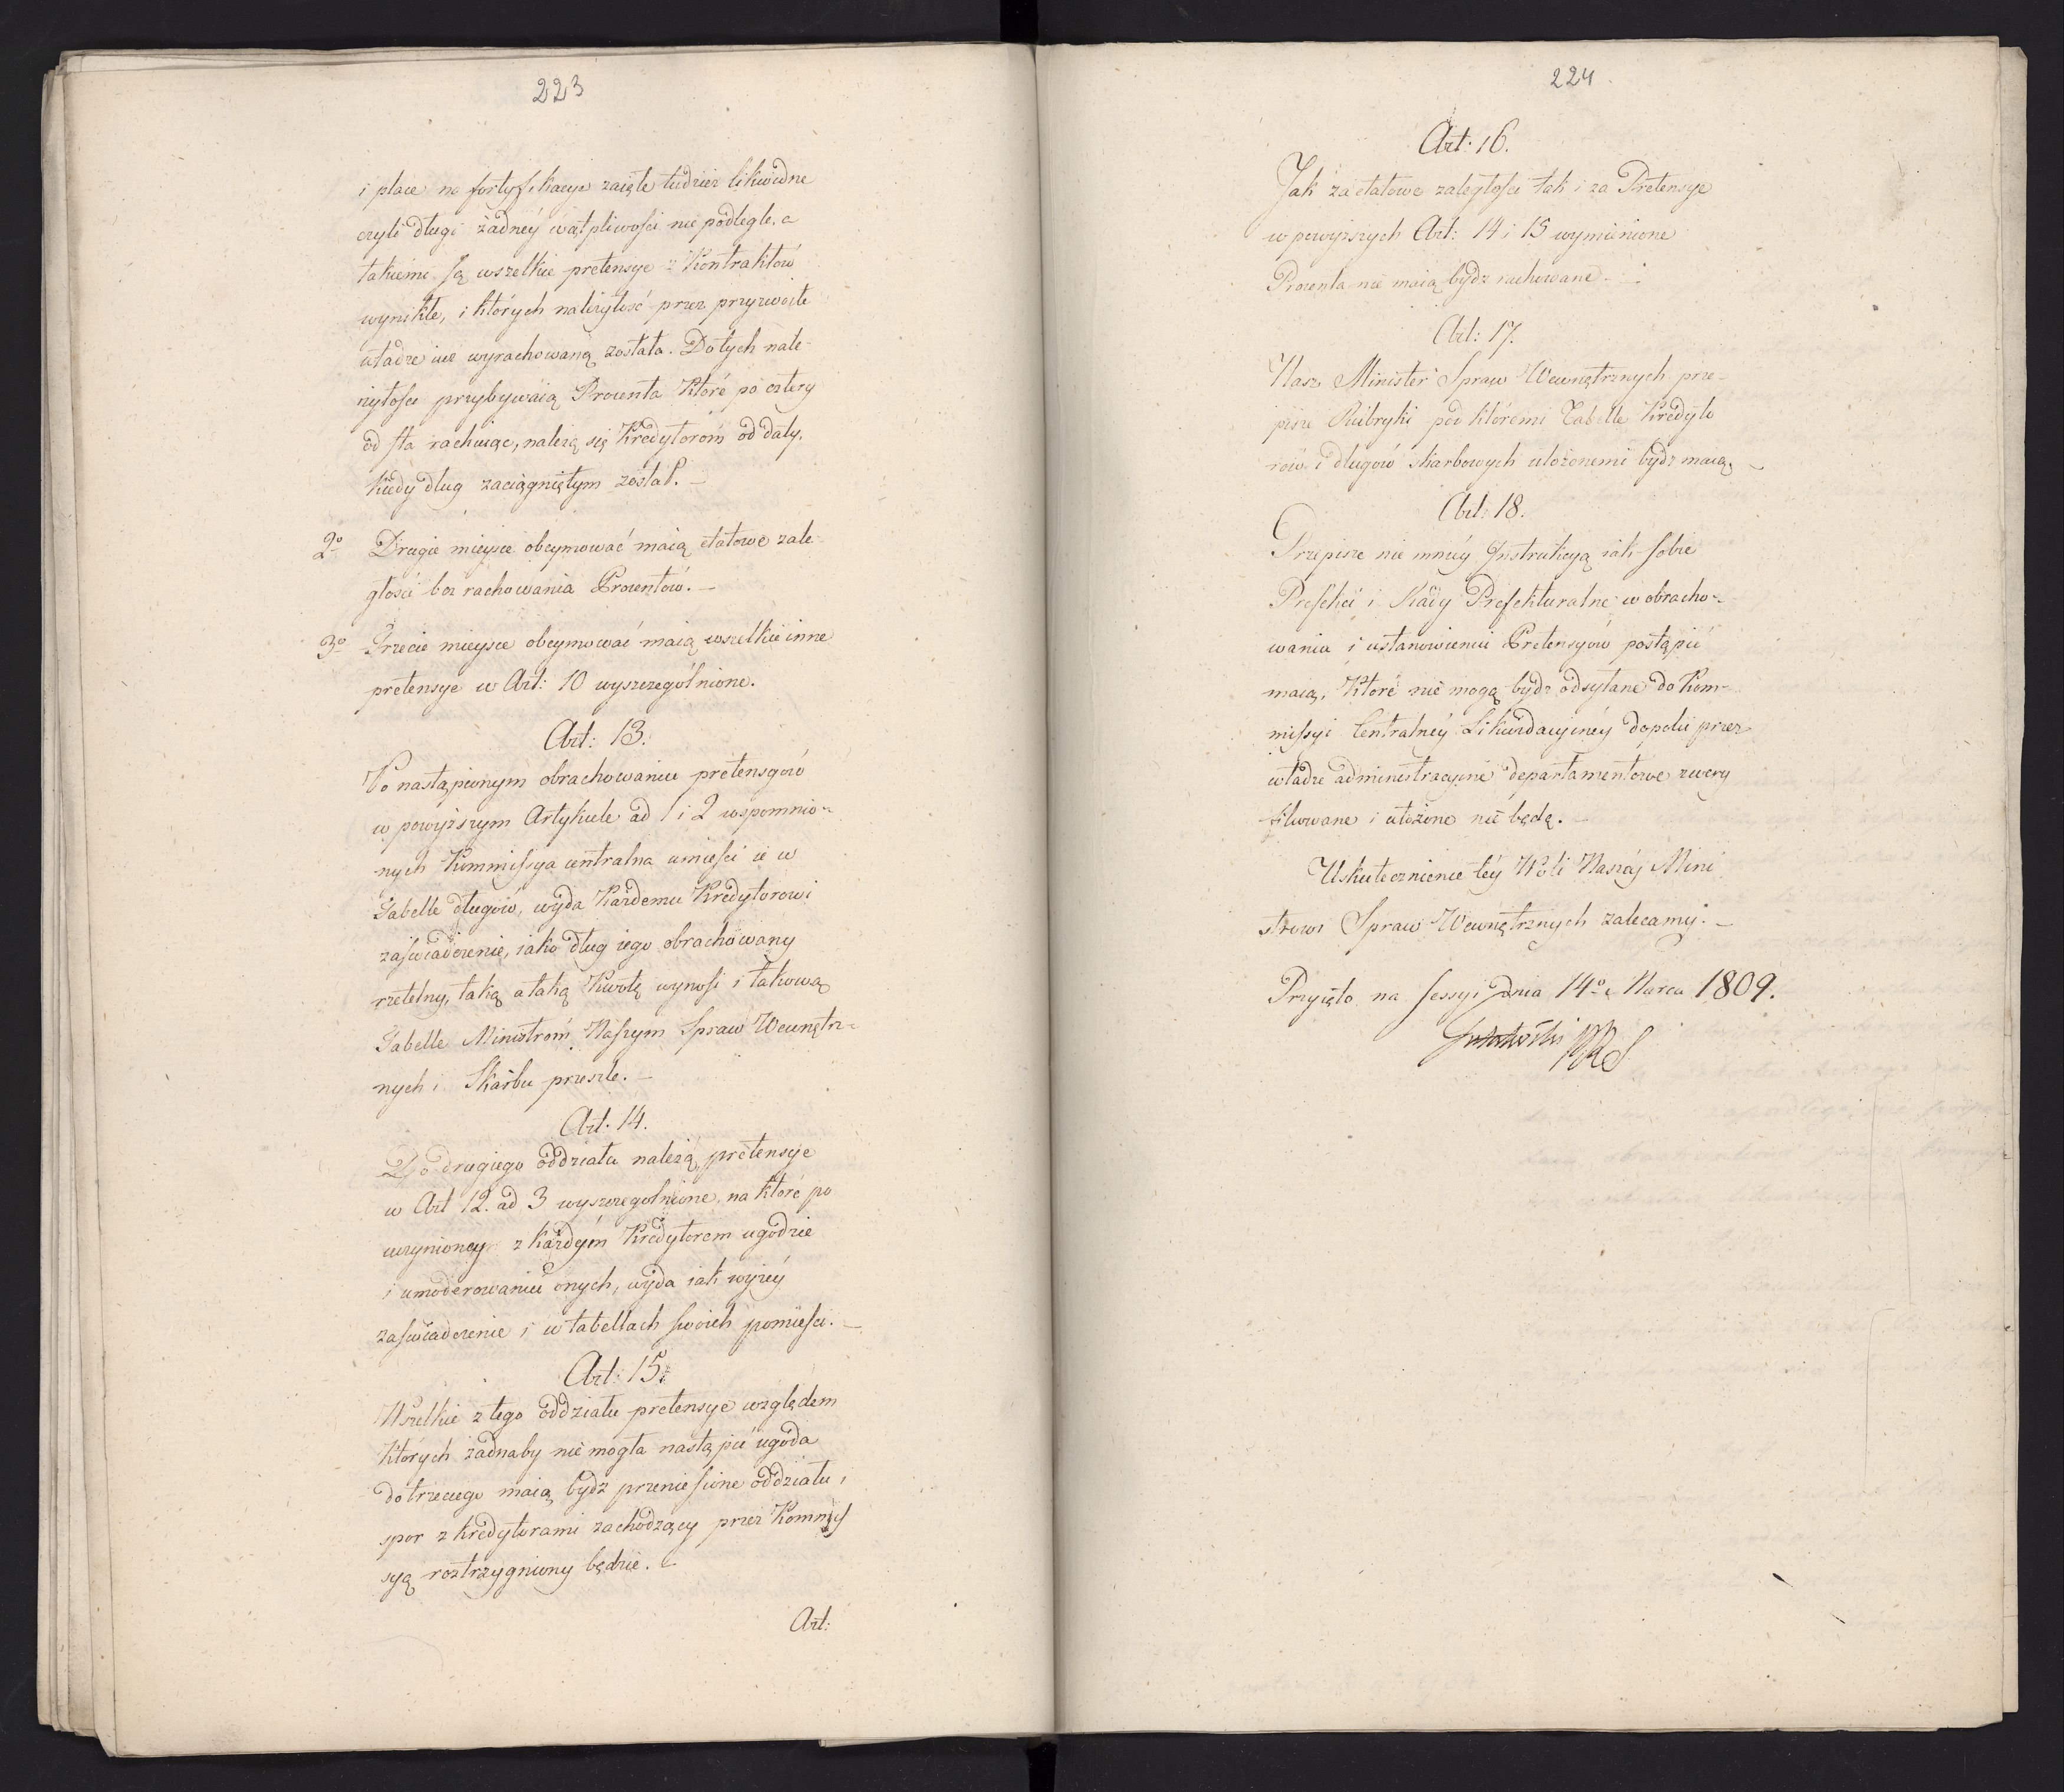 223
i place na fortyfikacye zaięte tudzież likwidne
czyli długi żadnéy wątpliwości nie podległe, a
takiemi są wszelkie pretensye z Kontraktów
wynikłe, i których należytość przez przyzwoite
władze iuż wyrachowaną została. Do tych nale-
żytości przybywaią Procenta które po cztery
od sta rachuiąc, należą się Kredytorom od daty,
kiedy dług zaciągniętym został. –
2o Drugie mieysce obeymować maią etatowe zale-
głości bez rachowania Procentów. –
3o Trzecie mieysce obeymować maią wszelkie inne
pretensye w Art: 10 wyszczególnione.
Art: 13.
Po nastąpionym obrachowaniu pretensyów
w powyższym Artykule ad 1 i 2 wspomnio-
nych Kommissya centralna umieści ie w
Tabelle długów, wyda Każdemu Kredytorowi
zaświadczenie, iako dług iego obrachowany
rzetelny, taką a taką Kwotę wynosi i takową
Tabelle Ministrom Naszym Spraw Wewnętrz-
nych i Skarbu prześle. –
Art: 14.
Do drugiego oddziału należą pretensye
w Art 12. ad 3 wyszczegolnione, na które po
uczynioney z każdym Kredytorem ugodzie
i umoderowaniu onych, wyda iak wyżéy
zaświadczenie i w tabellach swoich pomieści. –
Art: 15.
Wszelkie z tego oddziału pretensye względem
których żadnaby nie mogła nastąpić ugoda
do trzeciego maią bydź przeniesione oddziału,
spor z kredytorami zachodzący przez Kommis
syą roztrzygniony będzie. –
Art:
224
Art: 16.
Jak za etatowe zaległości tak i za Pretensye
w powyższych Art: 14 i 15 wymienione
Procenta nie maią bydź rachowane. –
Art: 17.
Nasz Minister Spraw Wewnętrznych prze-
pisze Rubryki pod któremi Tabelle Kredyto
rów i długów skarbowych ułożonemi bydź maią. –
Art: 18.
Przepisze nie mniéy Instrukcyą iak sobie
Prefekci i Rady Prefekturalne w obracho-
waniu i ustanowieniu Pretensyów postąpić
maią, które nie mogą bydź odsyłane do Kom-
missyi Centralnéy Likwidacyinéy dopoki przez
władze administracyine departamentowe zwery
fikowane i ułożone nie będą. –
Uskutecznienie téy Woli Naszéj Mini
strowi Spraw Wewnętrznych zalecamy. –
Przyięto na Sessyi dnia 14o Marca 1809.